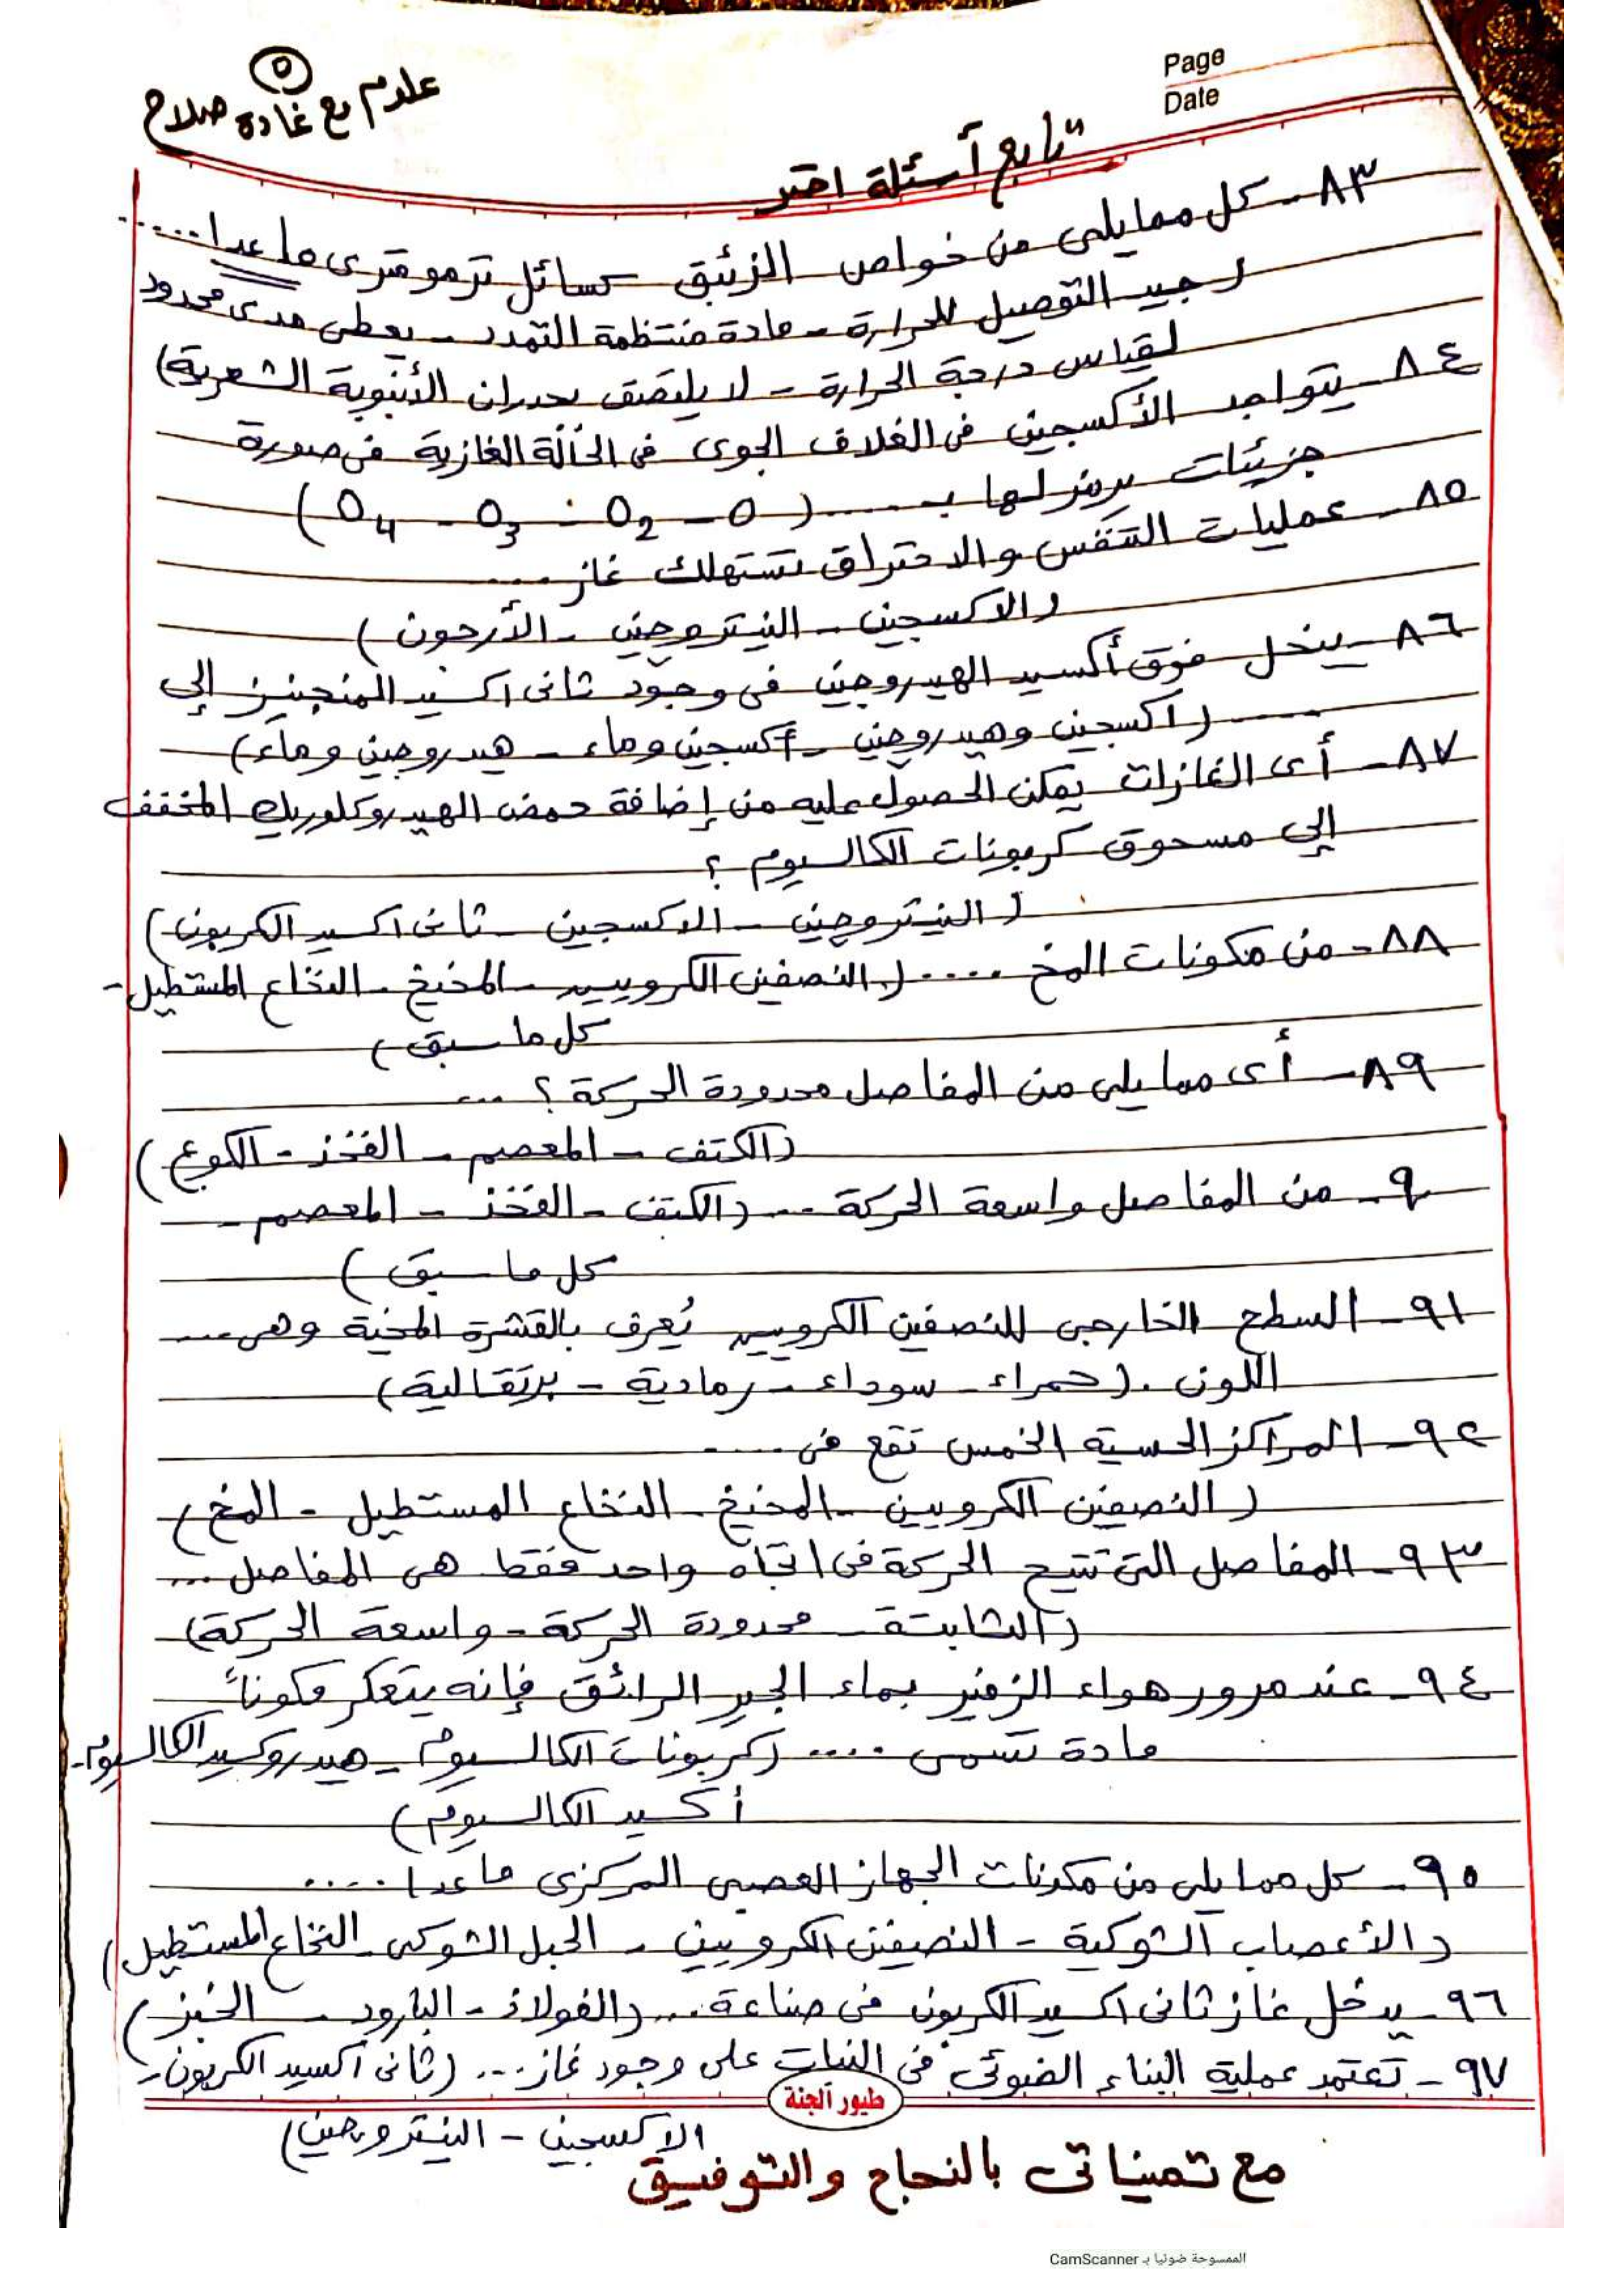 Page
Date
٥
علوم مع غادة صلاح
تابع أسئلة اختر
٨٣- كل مما يلى من خواص الزئبق كسائل ترمومترى ما عدا .....
( جيد التوصيل للحرارة - مادة منتظمة التمدد - يعطى مدى محدود
لقياس درجة الحرارة - لا يلتصق بجدران الأنبوبة الشعرية)
٨٤- يتواجد الأكسجين فى الغلاف الجوى فى الحالة الغازية فى صورة
جزيئات يرمز لها بـ ..... (O - O2 - O3 - O4)
٨٥- عمليات التنفس والاحتراق تستهلك غاز ....
(الاكسجين - النيتروجين - الأرجون)
٨٦- ينحل فوق أكسيد الهيدروجين فى وجود ثانى اكسيد المنجنيز إلى
..... (اكسجين وهيدروجين - أكسجين وماء - هيدروجين وماء)
٨٧- أى الغازات يمكن الحصول عليه من إضافة حمض الهيدروكلوريك المخفف
إلى مسحوق كربونات الكالسيوم ؟
( النيتروجين - الاكسجين - ثانى اكسيد الكربون)
٨٨- من مكونات المخ ..... (النصفين الكرويين - المخيخ - النخاع المستطيل -
كل ما سبق)
٨٩- أى مما يلى من المفاصل محدودة الحركة ؟ ...
(الكتف - المعصم - الفخذ - الكوع)
٩٠- من المفاصل واسعة الحركة ... (الكتف - الفخذ - المعصم -
كل ما سبق)
٩١- السطح الخارجى للنصفين الكرويين يُعرف بالقشرة المخية وهى ....
اللون . (حمراء - سوداء - رمادية - برتقالية)
٩٢- المراكز الحسية الخمس تقع فى .....
( النصفين الكرويين - المخيخ - النخاع المستطيل - المخ)
٩٣- المفاصل التى تتيح الحركة فى اتجاه واحد فقط هى المفاصل ...
(الثابتة - محدودة الحركة - واسعة الحركة)
٩٤- عند مرور هواء الزفير بماء الجير الرائق فإنه يتعكر مكوناً
مادة تسمى .... (كربونات الكالسيوم - هيدروكسيد الكالسيوم -
أكسيد الكالسيوم)
٩٥- كل مما يلى من مكونات الجهاز العصبى المركزى ما عدا .....
(الأعصاب الشوكية - النصفين الكرويين - الحبل الشوكى - النخاع المستطيل)
٩٦- يدخل غاز ثانى اكسيد الكربون فى صناعة .... (الفولاذ - البارود - الخبز)
٩٧- تعتمد عملية البناء الضوئى فى النبات على وجود غاز ... (ثانى أكسيد الكربون -
طيور الجنة
الاكسجين - النيتروجين)
مع تمنياتى بالنجاح والتوفيق
الممسوحة ضوئيا بـ CamScanner